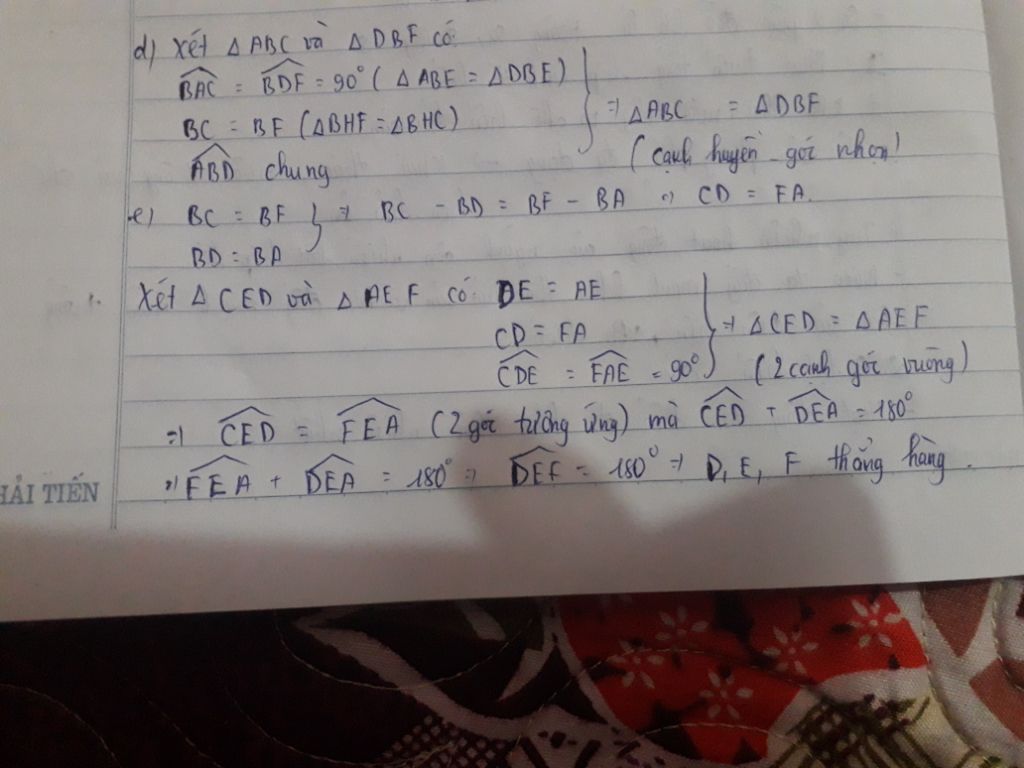 d) Xét △ ABC và △ DBF có
BAC = BDF = 90° (△ ABE = △DBE)
BC = BF (△BHF = △BHC)
⇒ △ABC = △DBF
ABD chung
(cạnh huyền - góc nhọn)
e) BC = BF } ⇒ BC - BD = BF - BA ⇒ CD = FA.
BD = BA
Xét △ CED và △ AEF có DE = AE
CD = FA
⇒ △CED = △AEF
CDE = FAE = 90°
(2 cạnh góc vuông)
⇒ CED = FEA (2 góc tương ứng) mà CED + DEA = 180°
⇒ FEA + DEA = 180° ⇒ DEF = 180° ⇒ D, E, F thẳng hàng.
HẢI TIẾN